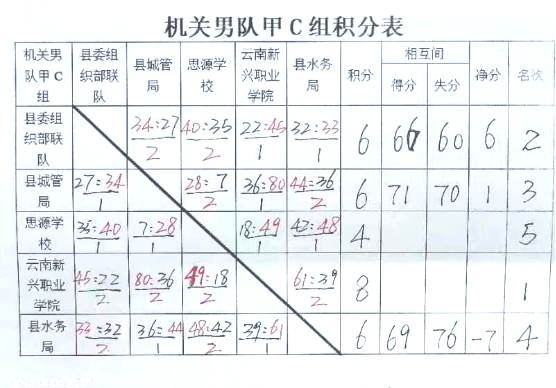 机关男队甲C组积分表
机关男队甲C组 县委组织部联队 县城管局 思源学校 云南新兴职业学院 县水务局 积分 相互间 得分 失分 净分 名次
县委组织部联队 34:27 2 40:35 2 22:45 1 32:33 1 6 66 60 6 2
县城管局 27:34 1 28:7 2 36:80 1 44:36 2 6 71 70 1 3
思源学校 35:40 1 7:28 1 18:49 1 42:48 1 4 5
云南新兴职业学院 45:22 2 80:36 2 49:18 2 61:39 2 8 1
县水务局 33:32 2 36:44 1 48:42 2 39:61 1 6 69 76 -7 4